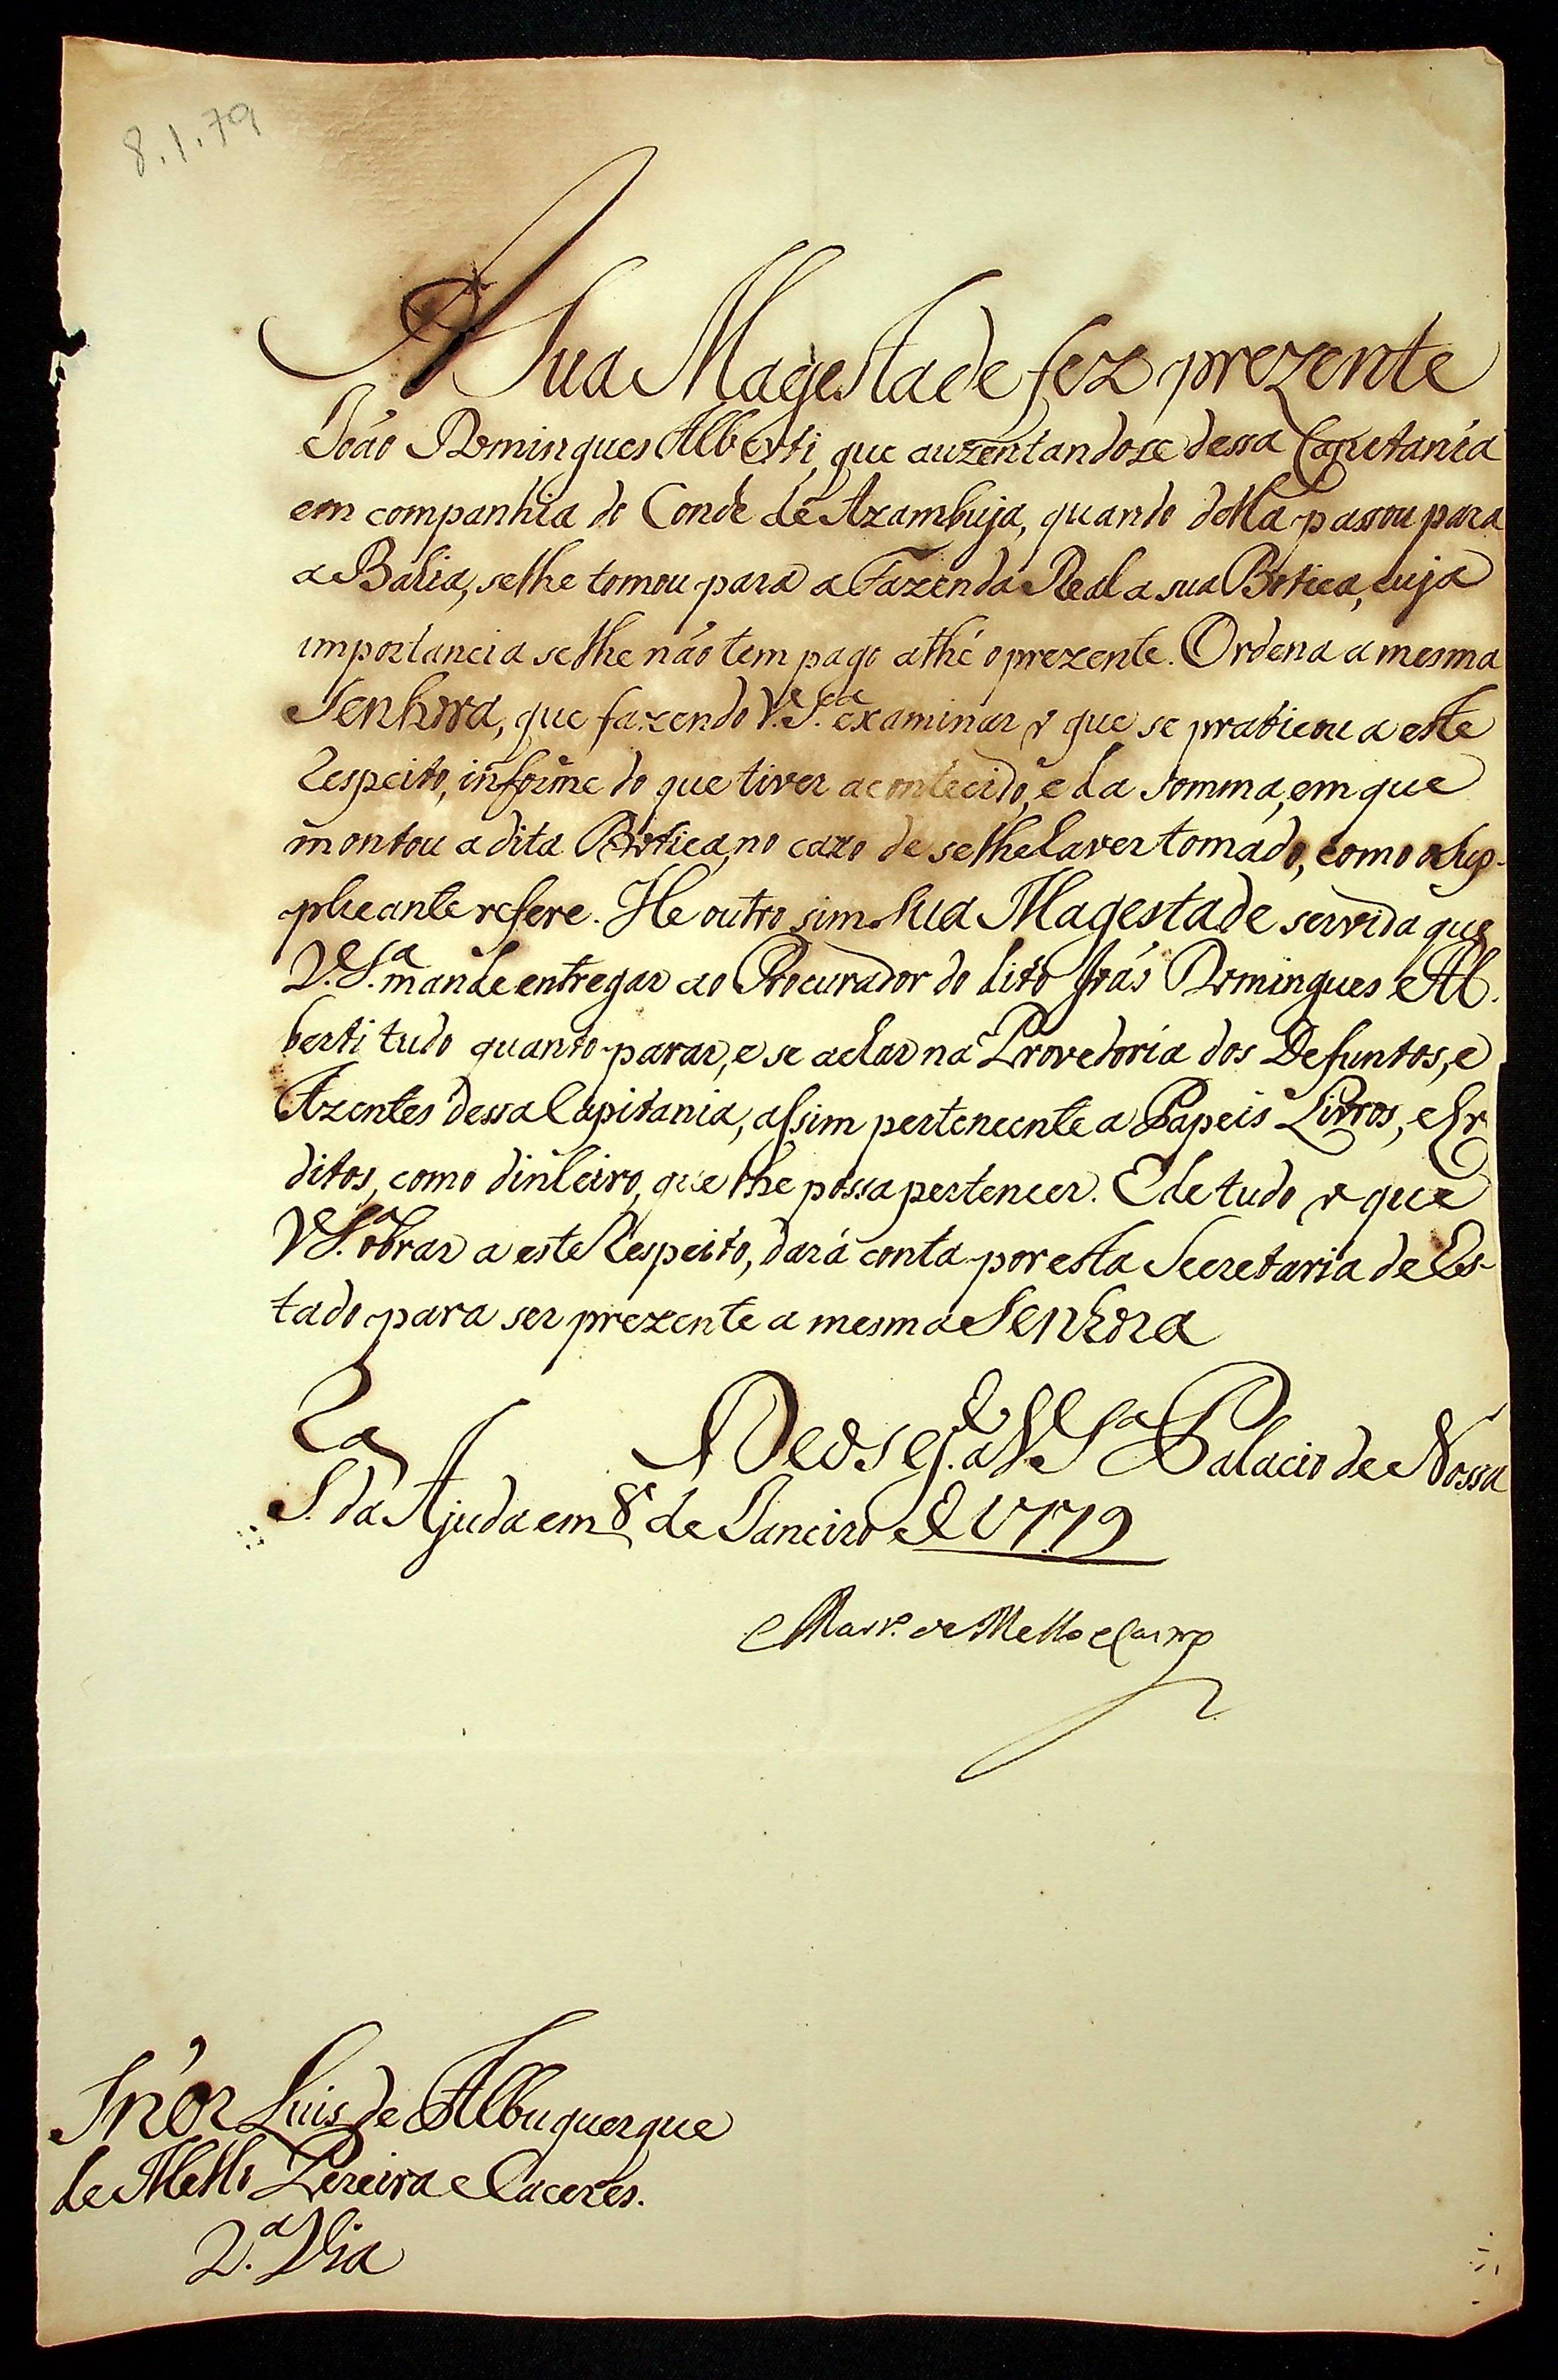 8.1.79
A Sua Magestade fez prezente
João Domingues Alberti, que auzentandose dessa Capitania
em companhia do Conde de Azambuja, quando della passou para
a Bahia, selhe tomou para a Fazenda Real a sua Botica, cuja
importancia selhe não tem pago athé o prezente. Ordena a mesma
Senhora, que fazendo V.S.ª examinar o que se praticou a este
respeito, informe do que tiver acontecido, e da somma, em que
montou a dita Botica, no cazo de selhe haver tomado, como o Sup-
plicante refere. He outro sim Sua Magestade servida que
V.S.ª mande entregar ao Procurador do dito Domingues Al-
berti tudo quanto parar, e se achar na Provedoria dos Defuntos, e
Azentes dessa Capitania, assim pertencente a Papeis Livros, e Cre
ditos, como dinheiro, que lhe possa pertencer. E de tudo o que
V.S.ª obrar a este respeito, dará conta por esta Secretaria de Es-
tado para ser prezente a mesma Senhora
Deos g.e a V.S.ª Palacio de Nossa
S.ra da Ajuda em 8 de Janeiro de 1779
Mart.º de Mello e Castro
Sn'or Luis de Albuquerque
de Mello Pereira e Caceres.
2.ª Via